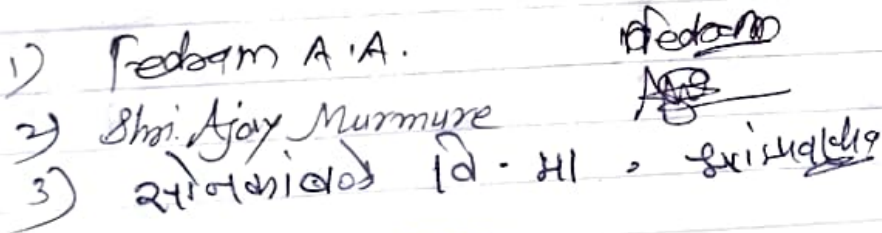 1) Pedam A.A. Pedam
2) Shri. Ajay Murmure
3) सोनकांबळे वि. मा.